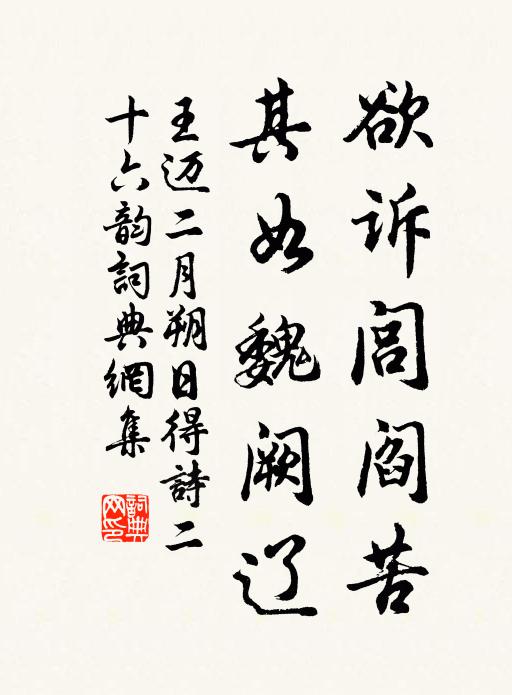 欲诉闾阎苦
其如魏阙辽
王迈二月朔日得詩二
十六韵詞典網集
詞典
网印